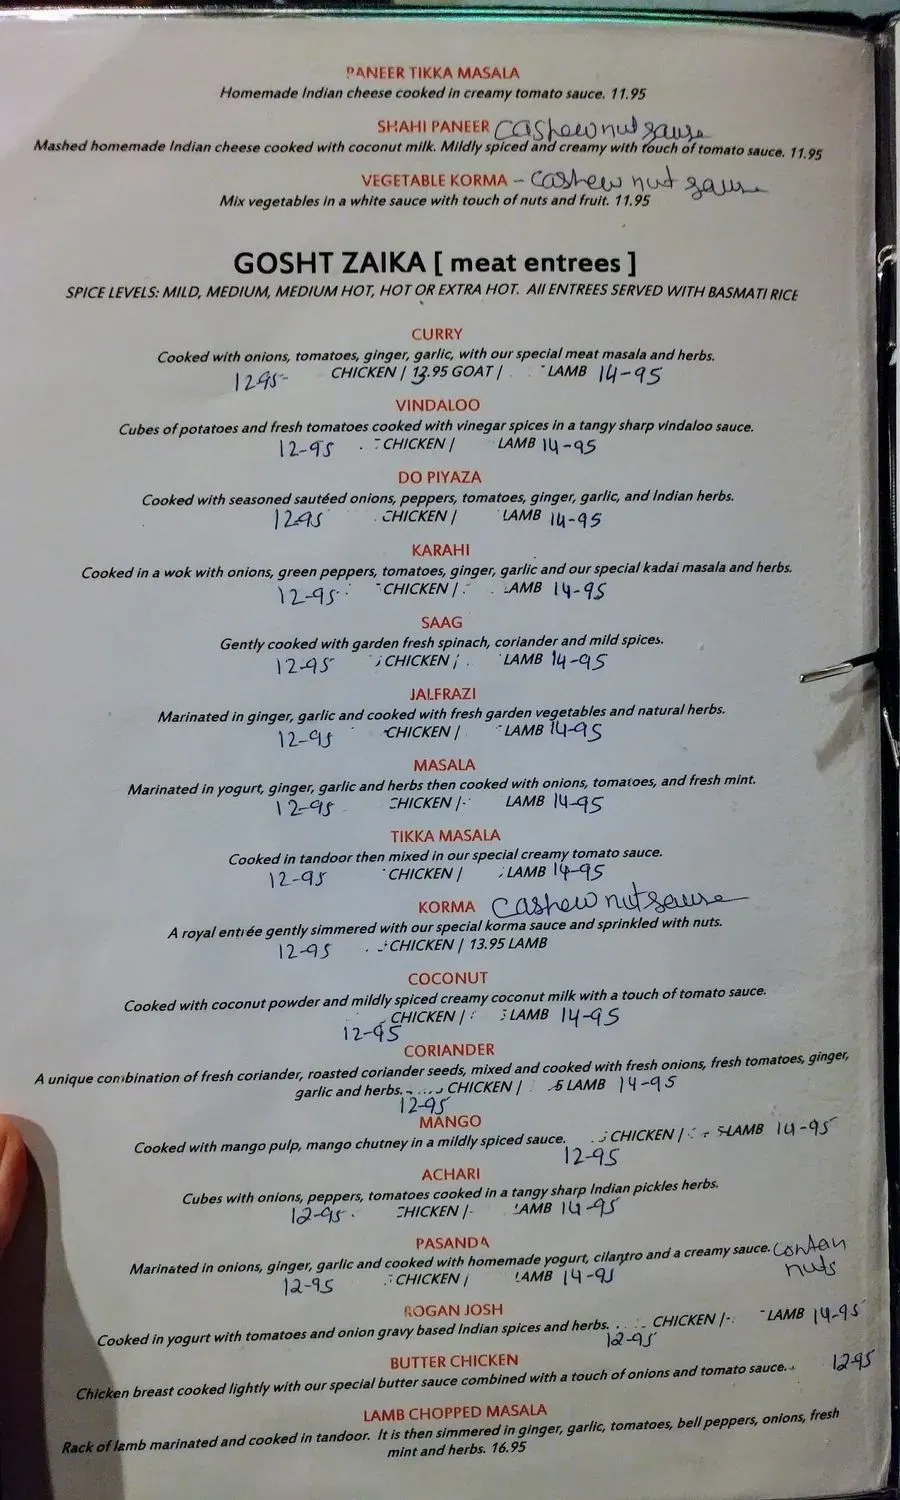 PANEER TIKKA MASALA
Homemade Indian cheese cooked in creamy tomato sauce. 11.95
SHAHI PANEER Cashew nut sause
Mashed homemade Indian cheese cooked with coconut milk. Mildly spiced and creamy with touch of tomato sauce. 11.95
VEGETABLE KORMA - Cashew nut sause
Mix vegetables in a white sauce with touch of nuts and fruit. 11.95
GOSHT ZAIKA [ meat entrees ]
SPICE LEVELS: MILD, MEDIUM, MEDIUM HOT, HOT OR EXTRA HOT. All ENTREES SERVED WITH BASMATI RICE
CURRY
Cooked with onions, tomatoes, ginger, garlic, with our special meat masala and herbs.
1295- CHICKEN | 13.95 GOAT | LAMB 14-95
VINDALOO
Cubes of potatoes and fresh tomatoes cooked with vinegar spices in a tangy sharp vindaloo sauce.
12-95 CHICKEN | LAMB 14-95
DO PIYAZA
Cooked with seasoned sautéed onions, peppers, tomatoes, ginger, garlic, and Indian herbs.
1295 CHICKEN | LAMB 14-95
KARAHI
Cooked in a wok with onions, green peppers, tomatoes, ginger, garlic and our special kadai masala and herbs.
12-95 CHICKEN | LAMB 14-95
SAAG
Gently cooked with garden fresh spinach, coriander and mild spices.
12-95 CHICKEN | LAMB 14-95
JALFRAZI
Marinated in ginger, garlic and cooked with fresh garden vegetables and natural herbs.
12-95 CHICKEN | LAMB 14-95
MASALA
Marinated in yogurt, ginger, garlic and herbs then cooked with onions, tomatoes, and fresh mint.
12-95 CHICKEN | LAMB 14-95
TIKKA MASALA
Cooked in tandoor then mixed in our special creamy tomato sauce.
12-95 CHICKEN | LAMB 14-95
KORMA Cashew nut sause
A royal entrée gently simmered with our special korma sauce and sprinkled with nuts.
12-95 CHICKEN | 13.95 LAMB
COCONUT
Cooked with coconut powder and mildly spiced creamy coconut milk with a touch of tomato sauce.
CHICKEN | LAMB 14-95
12-95
CORIANDER
A unique combination of fresh coriander, roasted coriander seeds, mixed and cooked with fresh onions, fresh tomatoes, ginger,
garlic and herbs. CHICKEN | 5 LAMB 14-95
12-95
MANGO
Cooked with mango pulp, mango chutney in a mildly spiced sauce. CHICKEN | LAMB 14-95
12-95
ACHARI
Cubes with onions, peppers, tomatoes cooked in a tangy sharp Indian pickles herbs.
12-95 CHICKEN | LAMB 14-95
PASANDA
Marinated in onions, ginger, garlic and cooked with homemade yogurt, cilantro and a creamy sauce. contan
nuts
12-95 CHICKEN | LAMB 14-95
ROGAN JOSH
Cooked in yogurt with tomatoes and onion gravy based Indian spices and herbs. CHICKEN | LAMB 14-95
12-95
BUTTER CHICKEN
Chicken breast cooked lightly with our special butter sauce combined with a touch of onions and tomato sauce. 1295
LAMB CHOPPED MASALA
Rack of lamb marinated and cooked in tandoor. It is then simmered in ginger, garlic, tomatoes, bell peppers, onions, fresh
mint and herbs. 16.95